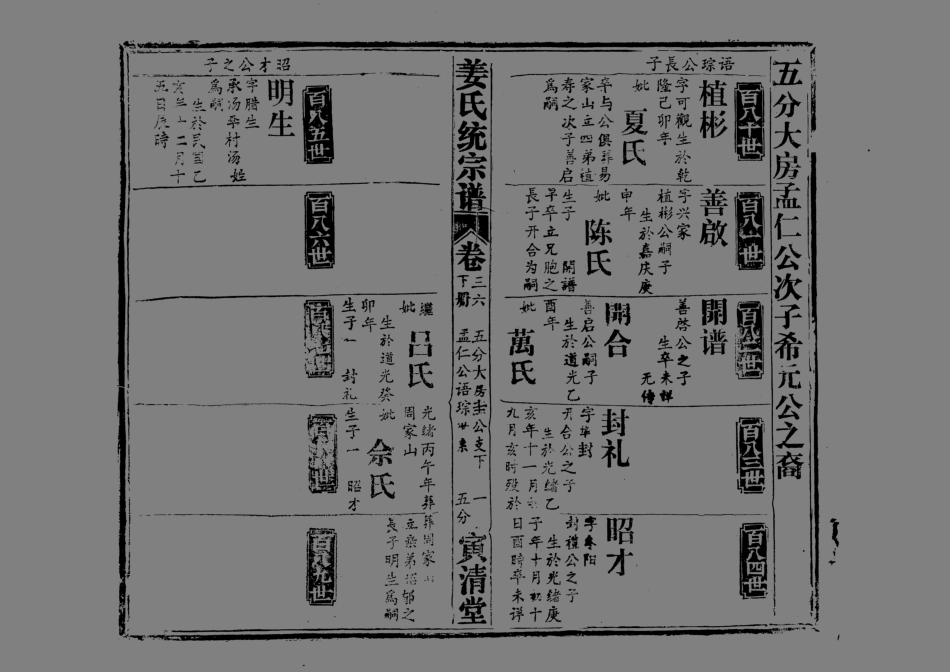 五分大房孟仁公次子希元公之裔
百八十世
语琮公長子
植彬
字可觀生於乾
隆己卯年
妣
夏氏
卒与公俱葬易
家山立四弟植
寿之次子善启
爲嗣
百八一世
善啟
字兴家
植彬公嗣子
生於嘉庆庚
申年
妣
陈氏
生子 開譜
早卒立兄胞之
長子开合为嗣
百八二世
開谱
善啓公之子
生卒未詳
无傳
開合
善启公嗣子
生於道光乙
酉年
妣
萬氏
百八三世
封礼
字华封
开合公之子
生於光緒乙
亥年十一月
九月亥时殁於
百八四世
昭才
字春阳
封禮公之子
生於光绪庚
子年十月初十
日酉時卒未详
姜氏统宗谱
卷
三六
下册
五分大房 公支下
孟仁公语琮 系
一
五分
寅清堂
繼
妣
吕氏
生於道光癸
卯年
生子一 封礼
光緒丙午年葬
周家山
妣
佘氏
生子一 昭才
葬周家山
立桑弟昭郁之
長子明生爲嗣
百八五世
昭才公之子
明生
字腊生
承汤平村汤姓
爲嗣
生於民国乙
亥年十二月十
五日辰時
百八六世
百八七世
百八八世
百八九世